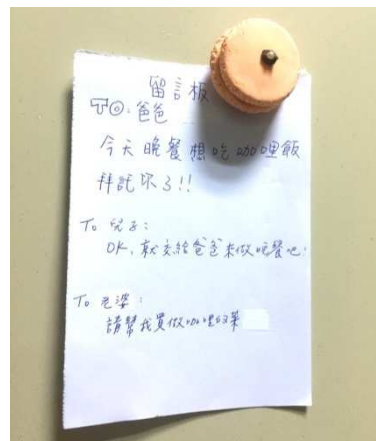 留言板
TO:爸爸
今天晚餐想吃咖哩飯
拜託你了!!
To 兒子:
OK,就交給爸爸來做晚餐吧!
To 老婆:
請幫我買做咖哩的菜